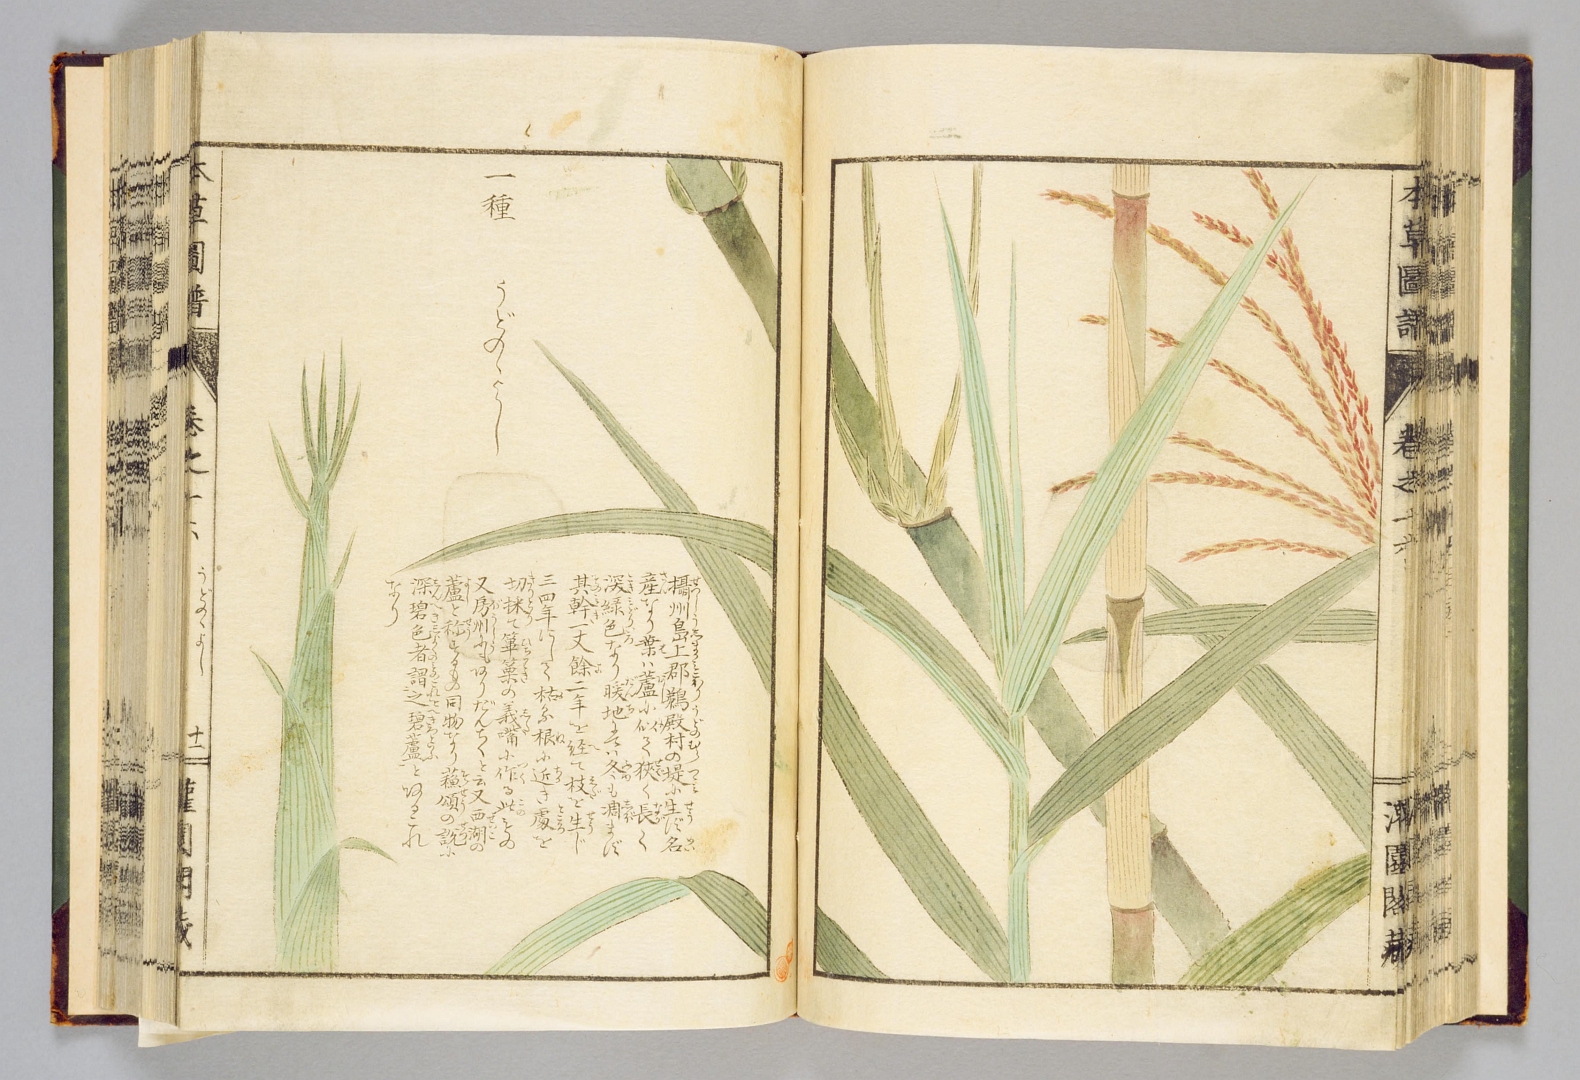 本草圖譜
卷之十六
灌園閣藏
一種
うどのゝよし
攝州島上郡鵜殿村の堤に生ず名
産なり葉ハ蘆に似て狹く長く
深緑色なり暖地にてハ冬も凋まず
其幹一丈餘二年を経て枝を生じ
三四年にして枯る根に近き處を
切採て篳篥の義嘴に作る此もの
又房州にもありだんちくと云又西湖の
蘆と称するもの同物なり蘓頌の説に
深碧色者謂之碧蘆とあるこれ
なり
本草圖譜
卷之十六
うどのゝよし
十一
灌園閣藏